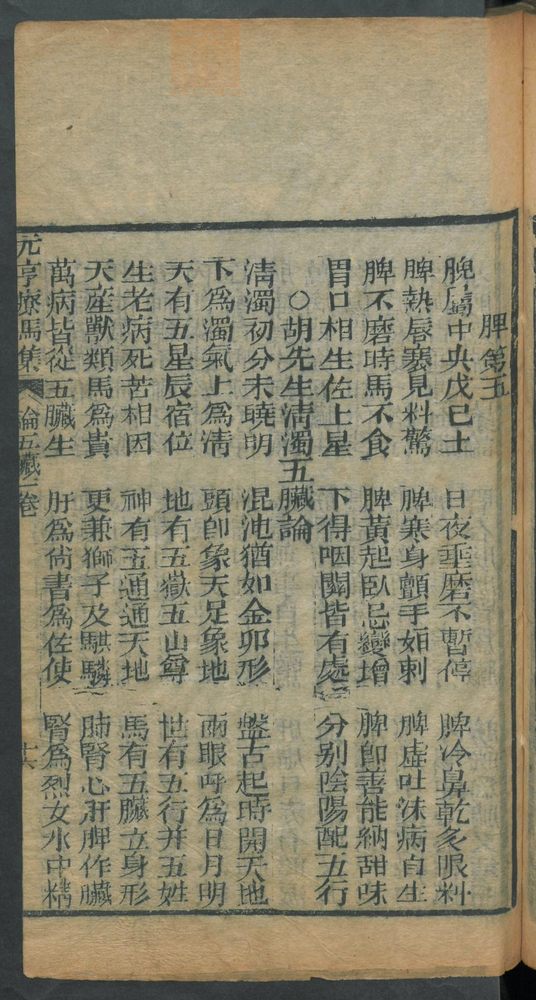 脾第五
脾屬中央戊巳土　日夜垂磨不暫停　脾冷鼻乾多眼料
脾熱唇蹇見料驚　脾寒身顫手如刺　脾虛吐沫病自生
脾不磨時馬不食　脾黃起臥忌變增　脾卽善能納甜味
胃口相生佐上星　下得咽關皆有處　分别陰陽配五行
○胡先生清濁五臟論
清濁初分未曉明　混沌猶如金卵形　盤古起時開天地
下爲濁氣上爲清　頭卽象天足象地　兩眼呼爲日月明
天有五星辰宿位　地有五嶽五山尊　世有五行并五姓
生老病死苦相因　神有五通通天地　馬有五臟立身形
天産獸類馬爲貴　更兼獅子及騏驎　肺腎心肝脾作臟
萬病皆從五臟生　肝爲尚書爲佐使　腎爲烈女水中精
元亨療馬集　論五臟一卷　十六